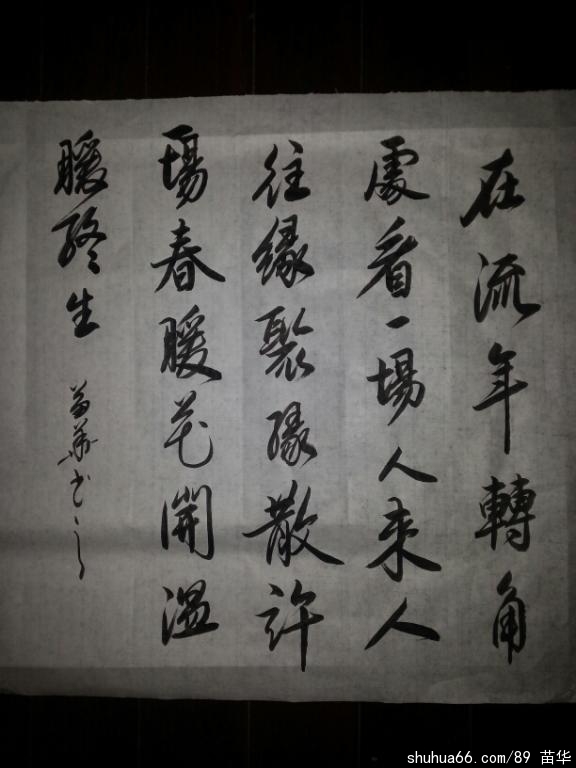 在流年轉角
處看一場人来人
往缘聚缘散許
一場春暖花開温
暖終生
苗华书之
shuhua66.com/89 苗华